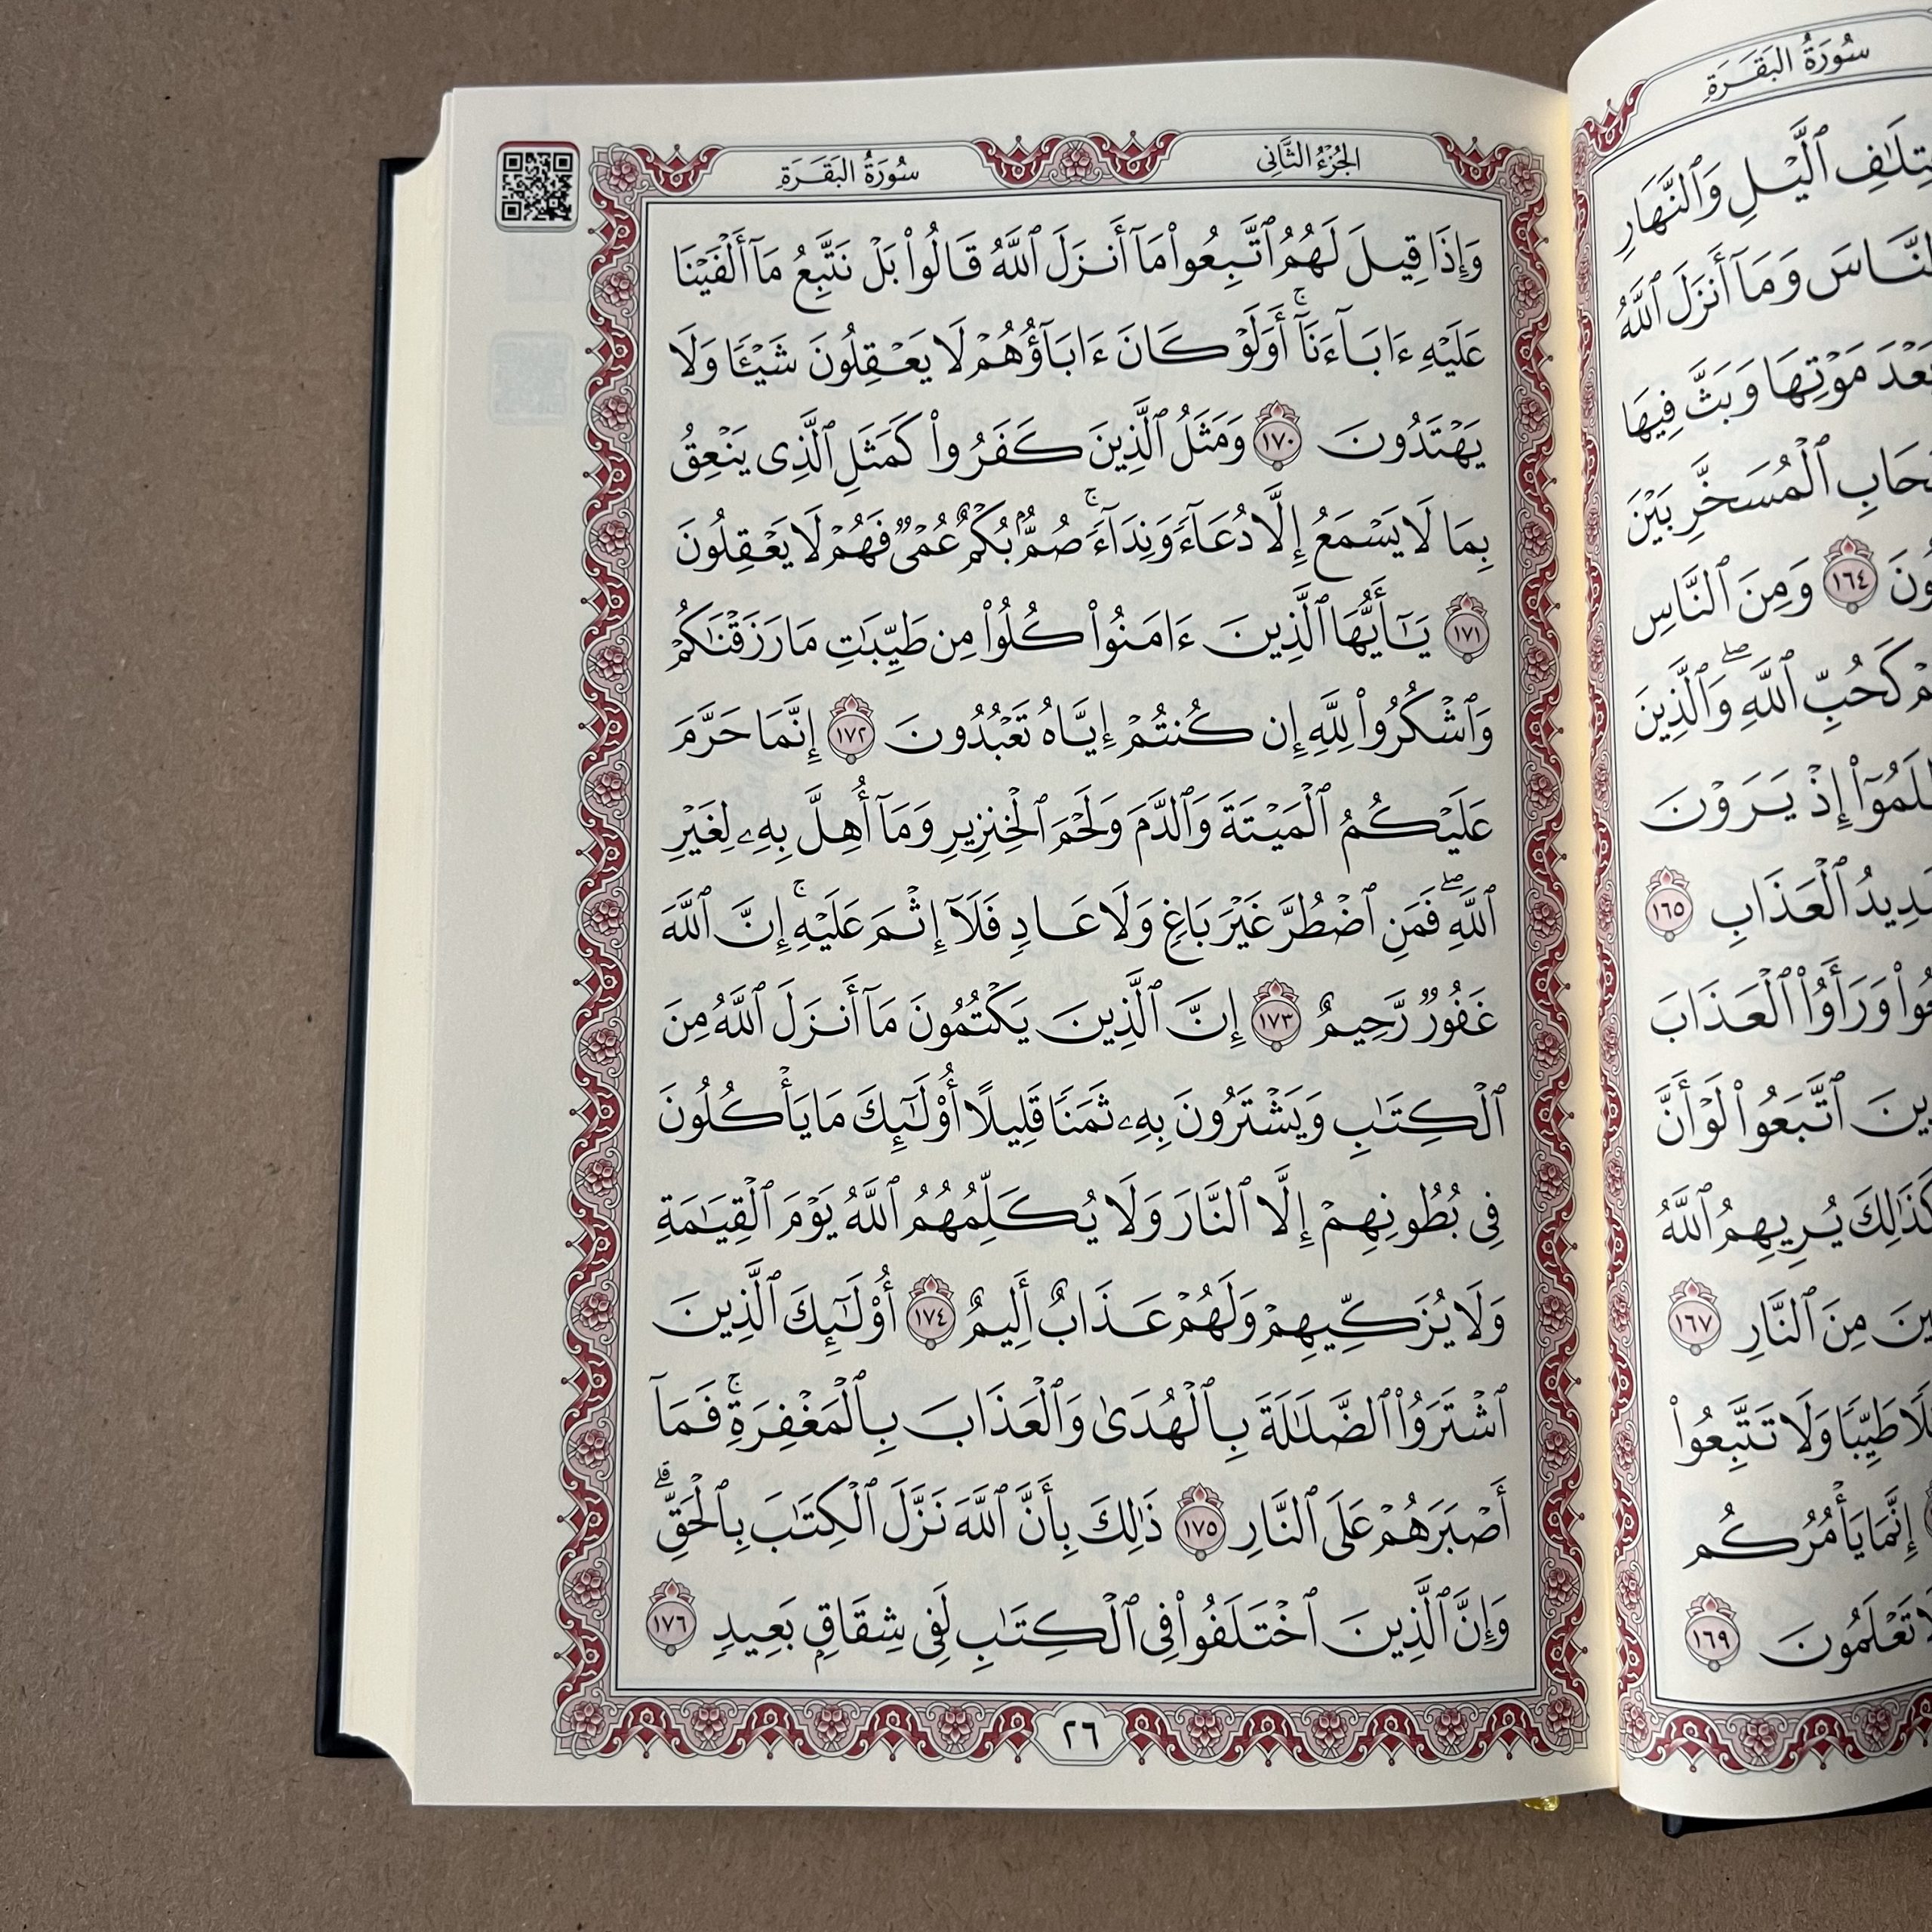 سُورَةُ البَقَرَةِ
تِلَٰفِ ٱلَّيْلِ وَٱلنَّهَارِ
ٱلنَّاسَ وَمَآ أَنزَلَ ٱللَّهُ
بَعْدَ مَوْتِهَا وَبَثَّ فِيهَا
ٱلْمُسَخَّرِ بَيْنَ
١٦٤ وَمِنَ ٱلنَّاسِ
كَحُبِّ ٱللَّهِۖ وَٱلَّذِينَ
إِذْ يَرَوْنَ
ٱلْعَذَابِ ١٦٥
وَرَأَوُا۟ ٱلْعَذَابَ
ٱتَّبَعُوا۟ لَوْ أَنَّ
كَذَٰلِكَ يُرِيهِمُ ٱللَّهُ
مِنَ ٱلنَّارِ ١٦٧
طَيِّبًا وَلَا تَتَّبِعُوا۟
إِنَّمَا يَأْمُرُكُم
تَعْلَمُونَ ١٦٩
الجُزْءُ الثَّانِى
سُورَةُ البَقَرَةِ
وَإِذَا قِيلَ لَهُمُ ٱتَّبِعُوا۟ مَآ أَنزَلَ ٱللَّهُ قَالُوا۟ بَلْ نَتَّبِعُ مَآ أَلْفَيْنَا
عَلَيْهِ ءَابَآءَنَآۚ أَوَلَوْ كَانَ ءَابَآؤُهُمْ لَا يَعْقِلُونَ شَيْـًٔا وَلَا
يَهْتَدُونَ ١٧٠ وَمَثَلُ ٱلَّذِينَ كَفَرُوا۟ كَمَثَلِ ٱلَّذِى يَنْعِقُ
بِمَا لَا يَسْمَعُ إِلَّا دُعَآءً وَنِدَآءًۚ صُمٌّۢ بُكْمٌ عُمْىٌ فَهُمْ لَا يَعْقِلُونَ
١٧١ يَـٰٓأَيُّهَا ٱلَّذِينَ ءَامَنُوا۟ كُلُوا۟ مِن طَيِّبَٰتِ مَا رَزَقْنَٰكُمْ
وَٱشْكُرُوا۟ لِلَّهِ إِن كُنتُمْ إِيَّاهُ تَعْبُدُونَ ١٧٢ إِنَّمَا حَرَّمَ
عَلَيْكُمُ ٱلْمَيْتَةَ وَٱلدَّمَ وَلَحْمَ ٱلْخِنزِيرِ وَمَآ أُهِلَّ بِهِۦ لِغَيْرِ
ٱللَّهِۖ فَمَنِ ٱضْطُرَّ غَيْرَ بَاغٍ وَلَا عَادٍ فَلَآ إِثْمَ عَلَيْهِۚ إِنَّ ٱللَّهَ
غَفُورٌ رَّحِيمٌ ١٧٣ إِنَّ ٱلَّذِينَ يَكْتُمُونَ مَآ أَنزَلَ ٱللَّهُ مِنَ
ٱلْكِتَٰبِ وَيَشْتَرُونَ بِهِۦ ثَمَنًا قَلِيلًا أُو۟لَـٰٓئِكَ مَا يَأْكُلُونَ
فِى بُطُونِهِمْ إِلَّا ٱلنَّارَ وَلَا يُكَلِّمُهُمُ ٱللَّهُ يَوْمَ ٱلْقِيَٰمَةِ
وَلَا يُزَكِّيهِمْ وَلَهُمْ عَذَابٌ أَلِيمٌ ١٧٤ أُو۟لَـٰٓئِكَ ٱلَّذِينَ
ٱشْتَرَوُا۟ ٱلضَّلَٰلَةَ بِٱلْهُدَىٰ وَٱلْعَذَابَ بِٱلْمَغْفِرَةِۚ فَمَآ
أَصْبَرَهُمْ عَلَى ٱلنَّارِ ١٧٥ ذَٰلِكَ بِأَنَّ ٱللَّهَ نَزَّلَ ٱلْكِتَٰبَ بِٱلْحَقِّۗ
وَإِنَّ ٱلَّذِينَ ٱخْتَلَفُوا۟ فِى ٱلْكِتَٰبِ لَفِى شِقَاقٍۭ بَعِيدٍ ١٧٦
٢٦